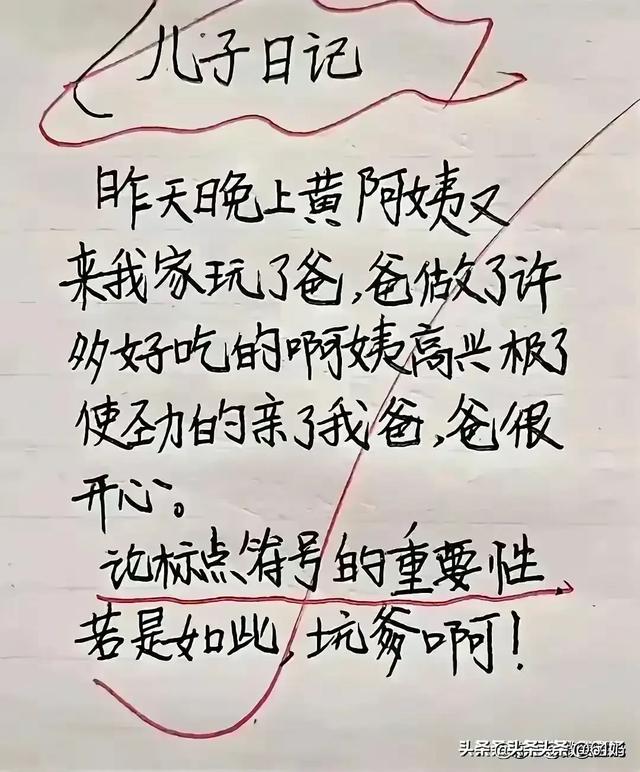 儿子日记
昨天晚上黄阿姨又
来我家玩了爸,爸做了许
多好吃的啊姨高兴极了
使劲的亲了我爸,爸很
开心。
论标点符号的重要性
若是如此,坑爹啊!